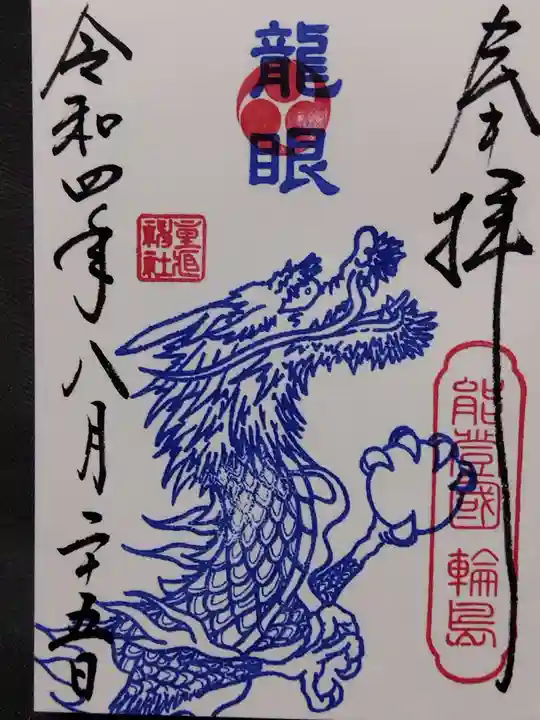 奉拝
能登國 輪島
龍眼
重蔵
神社
令和四年八月二十五日